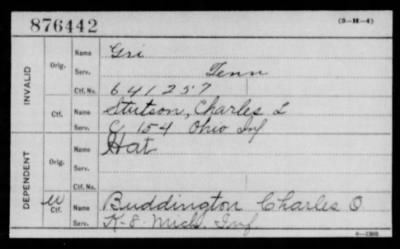 876442 (3-H-4)
INVALID
Orig. Name Gri
Serv. Tenn
Ctf. No. 641257
Ctf. Name Stutson, Charles L
Serv. C 154 Ohio Inf
DEPENDENT
Orig. Name Hat
Serv.
Ctf. No.
W Ctf. Name Buddington Charles O
Serv. K-8 Mich. Inf